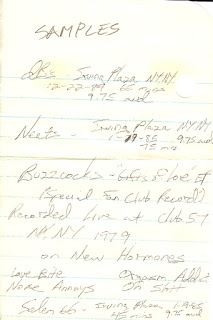 SAMPLES
dBs - Irving Plaza NY NY
65 mins
9.75 aud
Neats - Irving Plaza NY NY
9.75 aud
75 mins
Buzzcocks - Gifts of love EP
(Special Fan Club Record)
Recorded Live at Club 57
NY, NY 1979
on New Hormones
Love Bite Orgasm Addict
Noise Annoys Oh Shit
Salem 66 - Irving Plaza
45 mins 9.75 aud